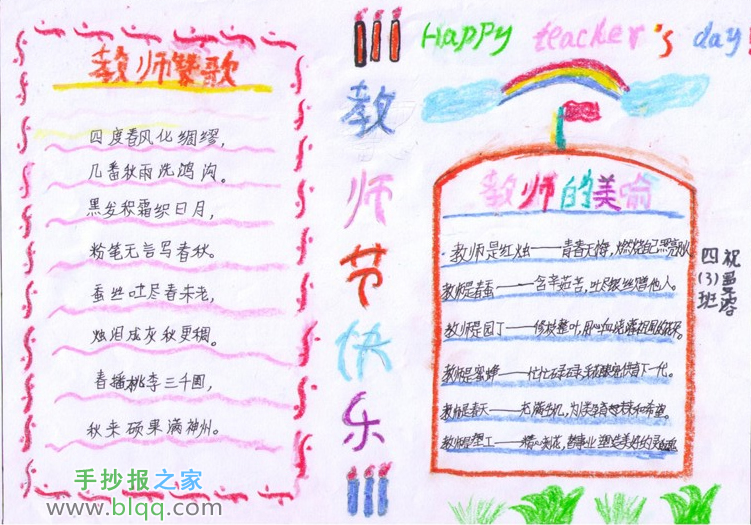 教师赞歌
四度春风化绸缪，
几番秋雨洗鸿沟。
黑发积霜织日月，
粉笔无言写春秋。
蚕丝吐尽春未老，
烛泪成灰秋更稠。
春播桃李三千圃，
秋来硕果满神州。
教师节快乐
Happy teacher's day!
教师的美喻
教师是红烛——青春无悔，燃烧自己照亮别人
教师是春蚕——含辛茹苦，吐尽蚕丝赠他人。
教师是园丁——修枝整叶，用心血浇灌祖国的花朵。
教师是蜜蜂——忙忙碌碌，采花酿蜜供育下一代。
教师是春天——充满生机，为
和希望。
教师是塑工——精心
美好的灵魂
四(3)班
祝
手抄报之家
www.blqq.com